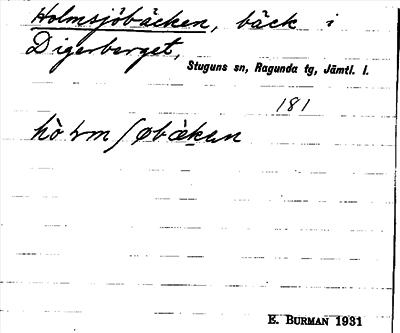 Holmsjöbäcken, bäck i
Digerberget,
Stuguns sn, Ragunda tg, Jämtl. l.
181
E. BURMAN 1931